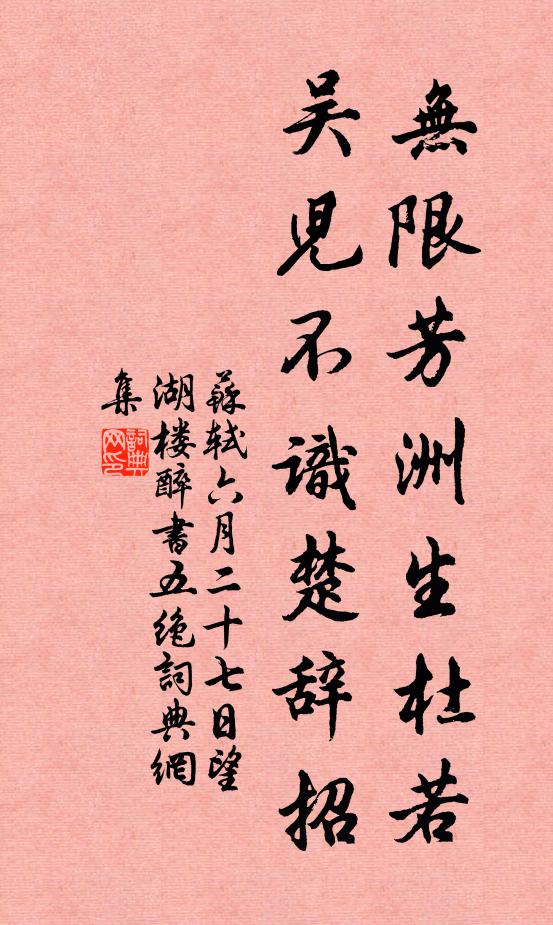 無限芳洲生杜若
吴児不識楚辞招
蘇軾六月二十七日望
湖楼醉書五绝詞典網
集
詞典
网印